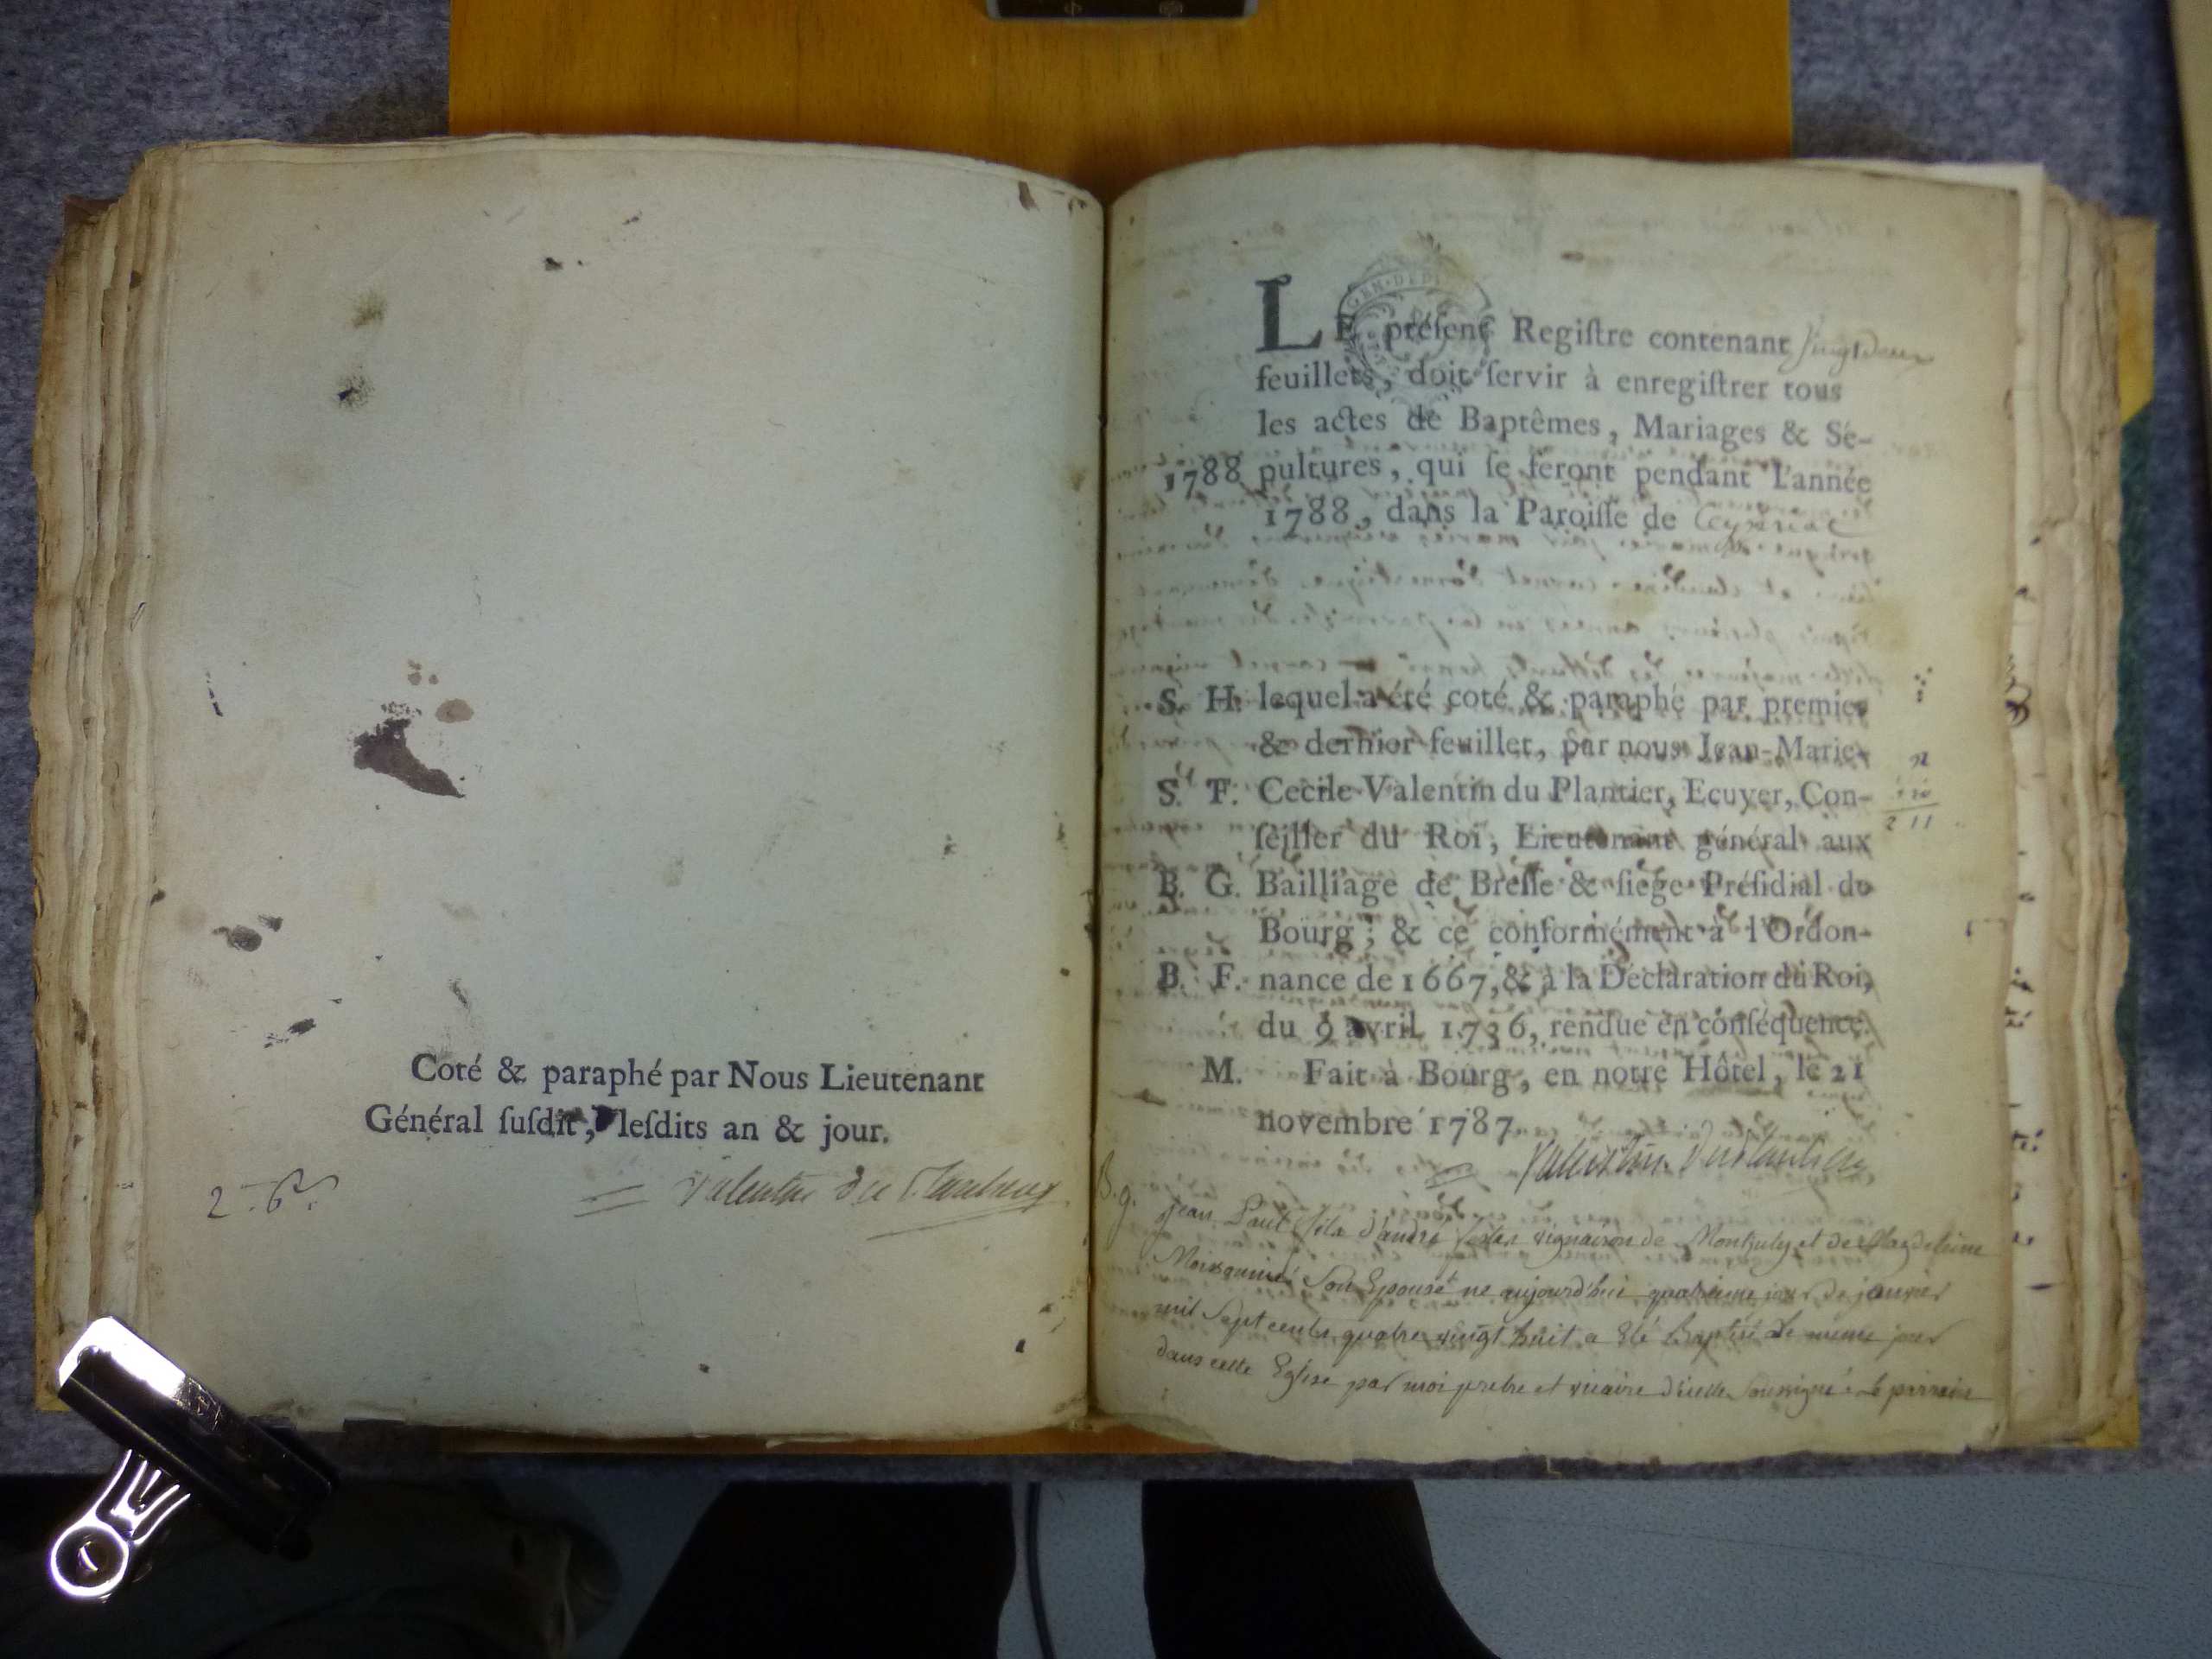 Coté & paraphé par Nous Lieutenant
Général ſuſdit, leſdits an & jour.
Valentin du Plantier
LE préſent Regiſtre contenant vingt deux
feuillets, doit ſervir à enregiſtrer tous
les actes de Baptêmes, Mariages & Sé-
1788 pultures, qui ſe feront pendant l'année
1788, dans la Paroiſſe de Ceyzeriat
S. H. lequel a été coté & paraphé par premier
& dernier feuillet, par nous Jean-Marie-
S. F. Cecile Valentin du Plantier, Ecuyer, Con-
ſeiller du Roi, Lieutenant général aux
B. G. Bailliage de Breſſe & ſiége Préſidial de
Bourg; & ce conformément à l'Ordon-
B. F. nance de 1667, & à la Déclaration du Roi,
du 9 avril 1736, rendue en conſéquence.
M. Fait à Bourg, en notre Hôtel, le 21
novembre 1787.
Valentin Duplantier
B. g. Jean Paul fils d'andré vigneron de Montjuly et de Magdeleine
son Epouse né aujourd'hui quatrieme jour de janvier
mil sept cents quatre vingt huit a Eté Baptisé le meme jour
dans cette Eglise par moi pretre et vicaire d'icelle soussigné Le parrain